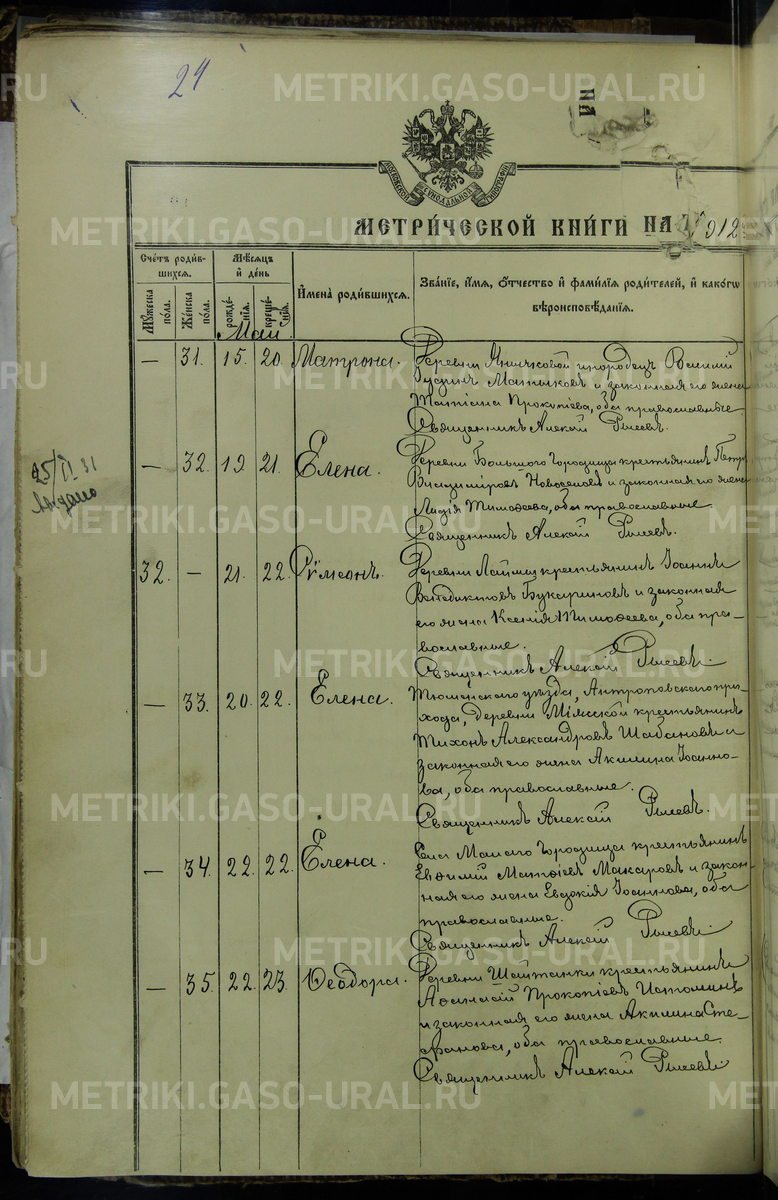 24
МЕТРИ́ЧЕСКОЙ КНИ́ГИ НА 1912
МОСКОВСКОЙ СѴНОДАЛЬНОЙ ТИПОГРАФІИ
Сче́тъ роди́вшихся.
Му́жеска по́ла.
Же́нска по́ла.
Мѣ́сяцъ и҆ де́нь
рожде́нія.
креще́нія.
И҆мена̀ роди́вшихся.
Зва́ніе, и҆́мя, ѻ҆́тчество и҆ фами́лія роди́телей, и҆ како́гѡ
вѣроисповѣ́данія.
Май
— 31. 15. 20. Матрона.
Деревни инородецъ Василий
и законная его жена
Татіана Прокопіева, оба православные
Священникъ Алексій
25/II 31
Выдано
— 32. 19. 21. Елена.
Деревни Большого Городища крестьянинъ Петръ
Владиміровъ Новоселовъ и законная его жена
Лидія Тимоѳеева, оба православные
Священникъ Алексій
32. — 21. 22. Сѵмеонъ.
Деревни крестьянинъ Іоаннъ
Венедиктовъ Букариновъ и законная
его жена Ксенія Тимоѳеева, оба пра-
вославные.
Священникъ Алексій
— 33. 20. 22. Елена.
Тюменского уѣзда, Антроповского при-
хода, деревни крестьянинъ
Тихонъ Александровъ Шабановъ и
законная его жена Акилина Іоанно-
ва, оба православные.
Священникъ Алексій
— 34. 22. 22. Елена.
Села Малаго Городища крестьянинъ
Евѳимій Матѳіевъ Макаровъ и закон-
ная его жена Евдокія Іоаннова, оба
православные.
Священникъ Алексій
— 35. 22. 23. Ѳеодора.
Деревни Шайтанки крестьянинъ
Аѳанасій Прокопіевъ Истоминъ
и законная его жена Акилина Сте-
фанова, оба православные.
Священникъ Алексій
METRIKI.GASO-URAL.RU